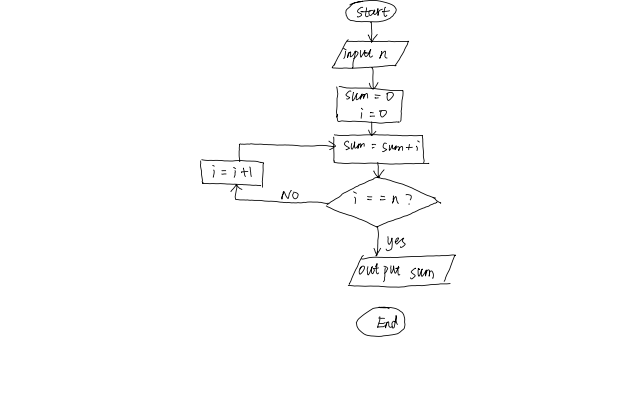 start
input n
sum = 0
i = 0
sum = sum + i
i = i + 1
NO
i == n ?
yes
output sum
End